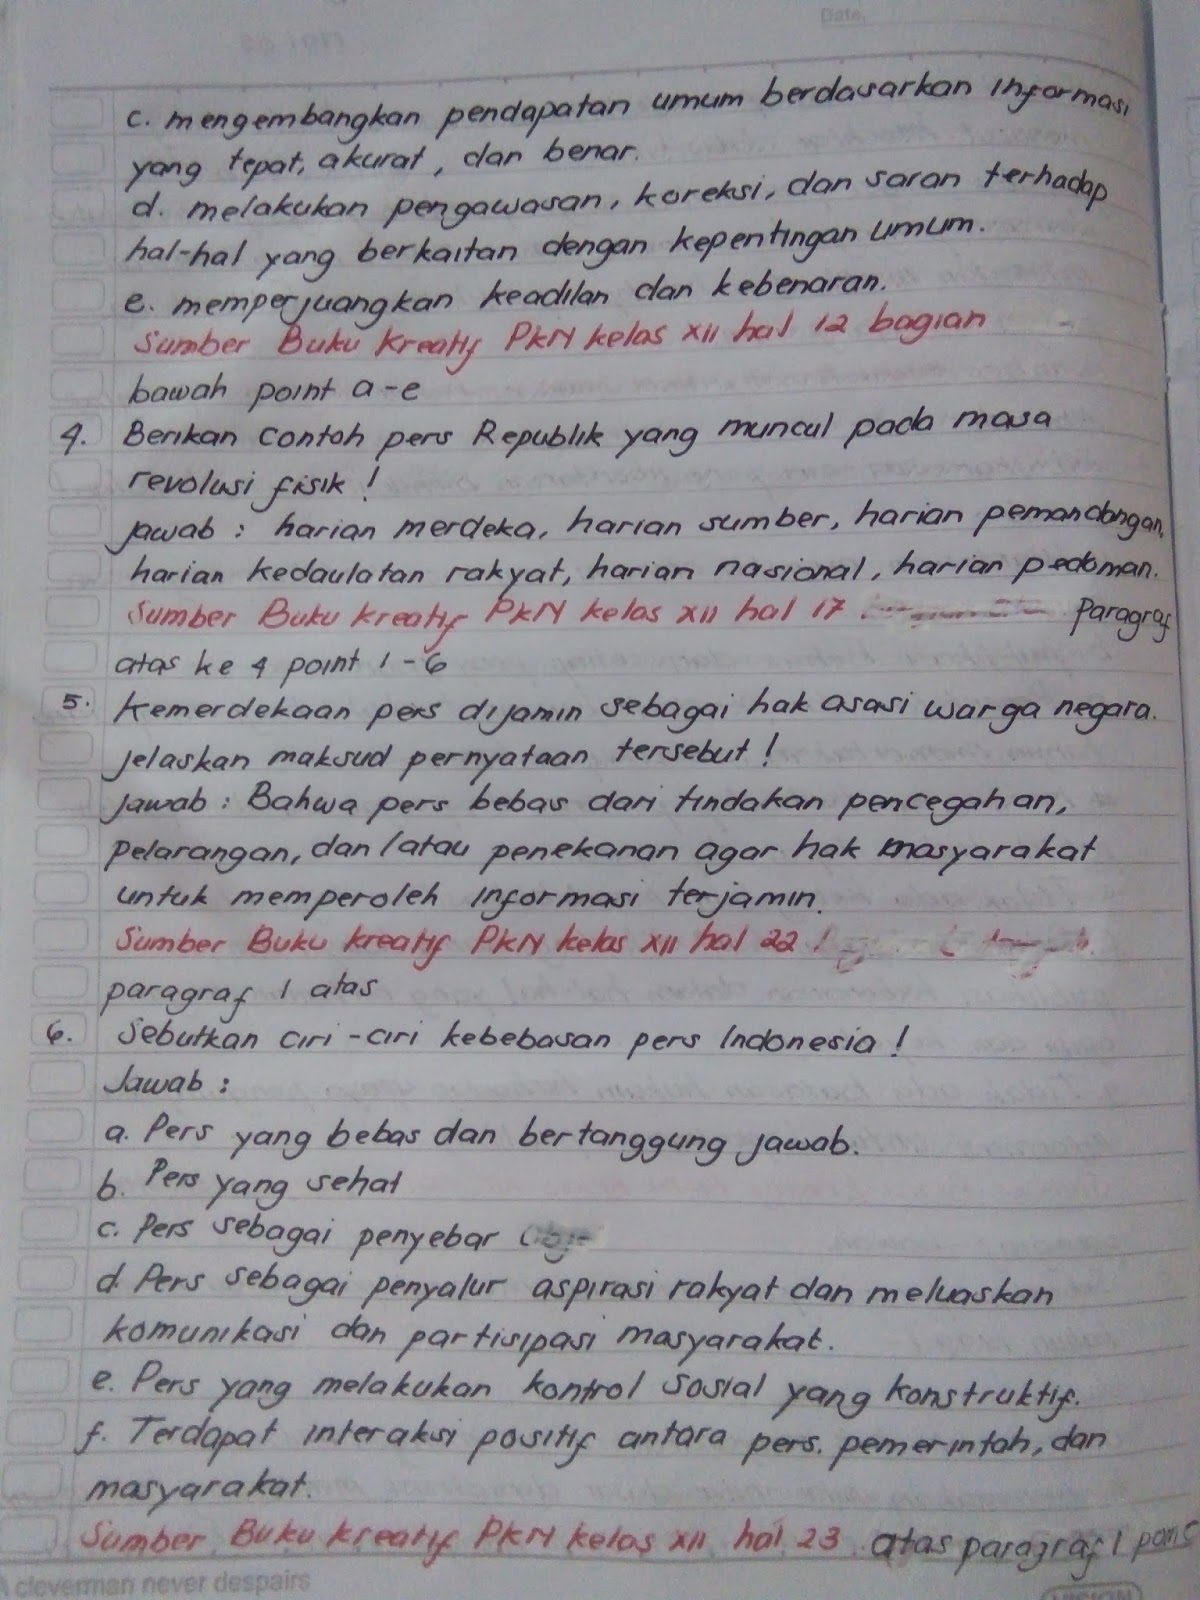 Date.
c. mengembangkan pendapatan umum berdasarkan informasi
yang tepat, akurat, dan benar.
d. melakukan pengawasan, koreksi, dan saran terhadap
hal-hal yang berkaitan dengan kepentingan umum.
e. memperjuangkan keadilan dan kebenaran.
Sumber Buku kreatif PKN kelas XII hal 12 bagian
bawah point a-e
4. Berikan contoh pers Republik yang muncul pada masa
revolusi fisik !
Jawab : harian merdeka, harian sumber, harian pemandangan,
harian kedaulatan rakyat, harian nasional, harian pedoman.
Sumber Buku kreatif PKN kelas XII hal 17 Paragraf
atas ke 4 point 1-6
5. Kemerdekaan pers dijamin sebagai hak asasi warga negara.
Jelaskan maksud pernyataan tersebut !
Jawab : Bahwa pers bebas dari tindakan pencegahan,
pelarangan, dan/atau penekanan agar hak masyarakat
untuk memperoleh informasi terjamin.
Sumber Buku kreatif PKN kelas XII hal 22
paragraf 1 atas
6. Sebutkan ciri-ciri kebebasan pers Indonesia !
Jawab :
a. Pers yang bebas dan bertanggung jawab.
b. Pers yang sehat
c. Pers sebagai penyebar
d. Pers sebagai penyalur aspirasi rakyat dan meluaskan
komunikasi dan partisipasi masyarakat.
e. Pers yang melakukan kontrol sosial yang konstruktif.
f. Terdapat interaksi positif antara pers, pemerintah, dan
masyarakat.
Sumber Buku kreatif PKN kelas XII hal 23 atas paragraf 1
A cleverman never despairs
VISION